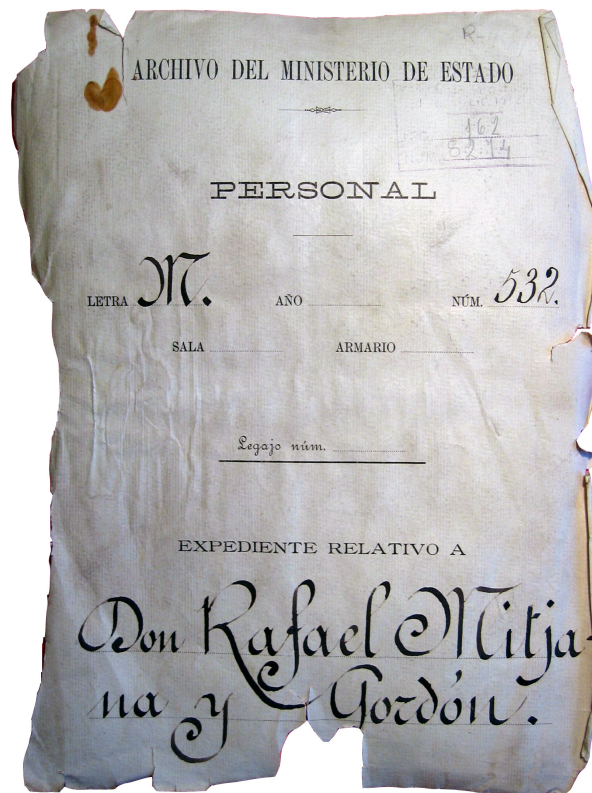 R-
ARCHIVO DEL MINISTERIO DE ESTADO
162
8214
PERSONAL
LETRA M. AÑO NÚM. 532.
SALA ARMARIO
Legajo núm.
EXPEDIENTE RELATIVO A
Don Rafael Mitja-
na y Gordón.